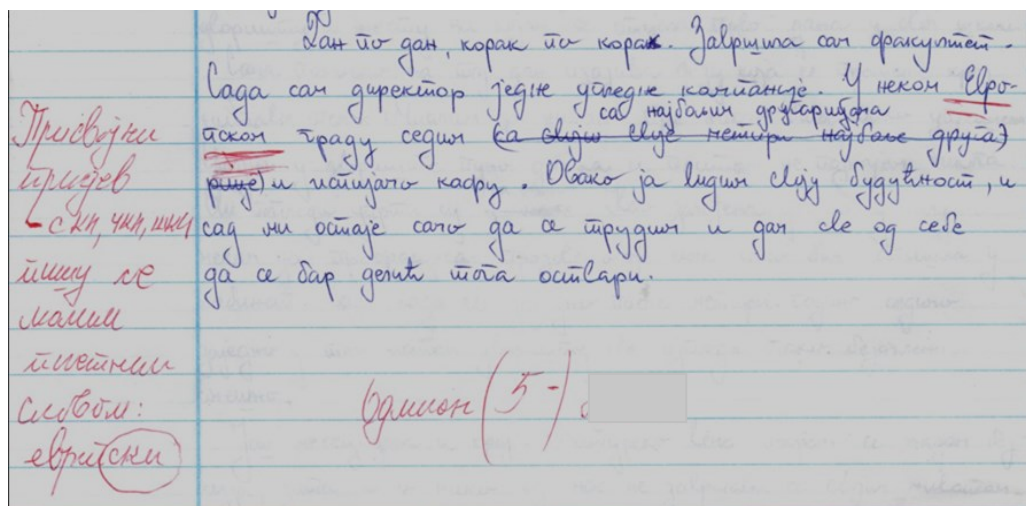 Дан по дан, корак по корак. Завршила сам факултет.
Сада сам директор једне угледне компаније. У неком Евро-
са најбољим другарицама
пском граду седим (са својим двије четири најбоље друга)
рице) и испијамо кафу. Овако ја видим своју будућност, и
сад ми остаје само да се трудим и дам све од себе
да се бар делић тога оствари.
Присвојни
придев
- ски, чки, шки
пишу се
малим
почетним
словом:
европски
Одличан (5-)